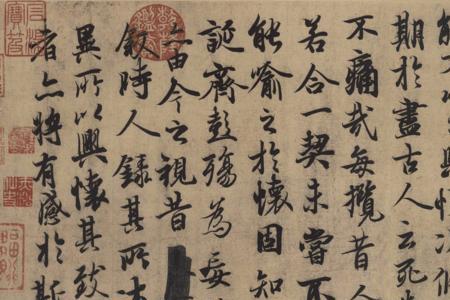 期於盡古人云死
不痛哉每攬昔人
若合一契未嘗不
能喻之於懷固知
誕齊彭殤為妄
亦由今之視昔
敘時人錄其所述
異所以興懷其致
者亦將有感於斯